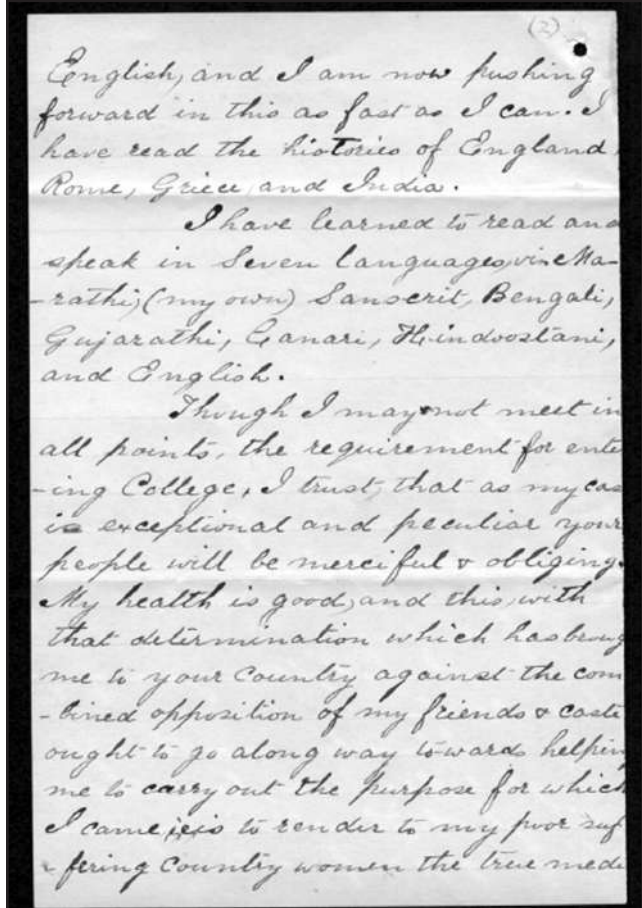 (2)
English, and I am now pushing
forward in this as fast as I can. I
have read the histories of England,
Rome, Griece, and India.
I have learned to read and
speak in Seven languages, viz Ma-
-rathi, (my own) Sanscrit, Bengali,
Gujarathi, Canari, Hindoostani,
and English.
Though I may not meet in
all points, the requirement for ente
-ing College, I trust, that as my cas
is exceptional and peculiar your
people will be merciful & obliging.
My health is good, and this, with
that determination which has broug
me to your Country against the com
-bined opposition of my friends & caste
ought to go along way towards helping
me to carry out the purpose for which
I came, is to render to my poor suf
-fering Country women the true medi